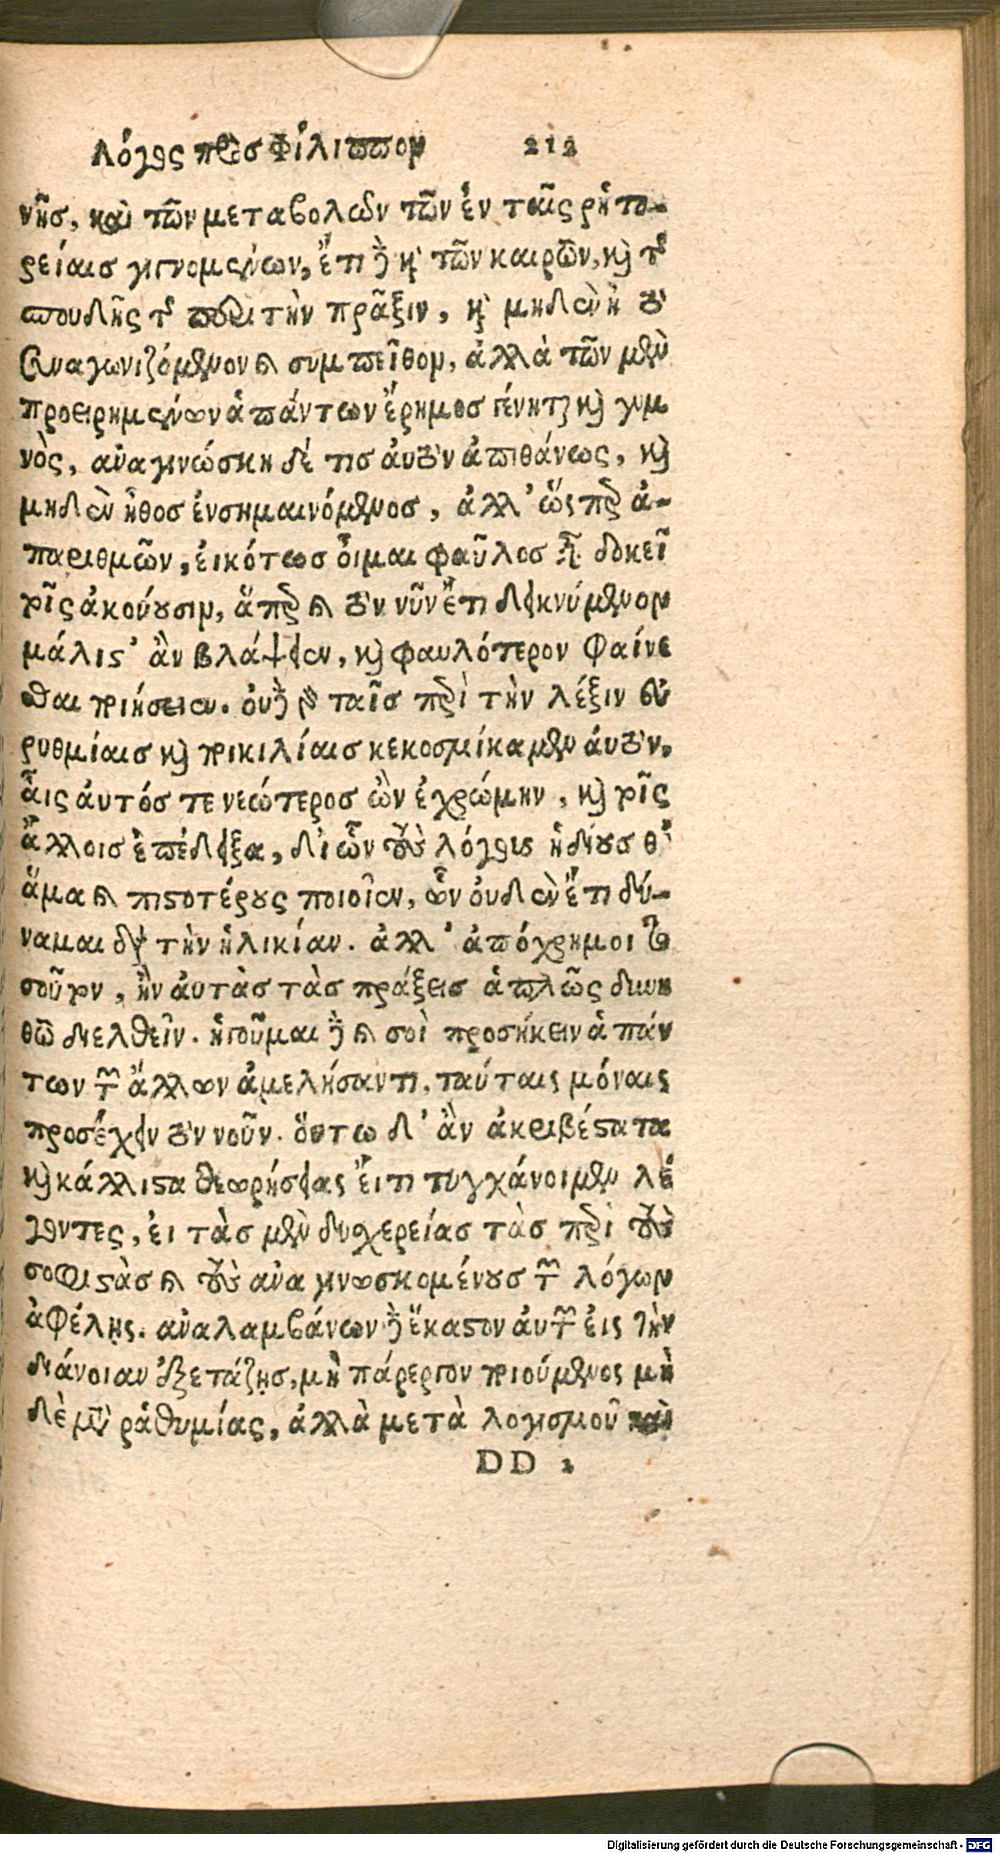 Λόγος πρὸσ Φίλιππον 212
νῆσ, καὶ τῶν μεταβολῶν τῶν ἐν ταῖς ρἡτο-
ρείαισ γιγνομένων, ἔτι δὲ καὶ τῶν καιρῶν, καὶ τῆς
σπουδῆς τῆς περὶ τὴν πρᾶξιν, καὶ μηδὲν ἦ τὸ
συναγωνιζόμενον καὶ συμπεῖθον, ἀλλὰ τῶν μὲν
προειρημένων ἁπάντων ἔρημοσ γένηται καὶ γυμ
νὸς, ἀναγινώσκη δέ τισ ἀυτὸν ἀπιθάνως, καὶ
μηδὲν ἦθοσ ἐνσημαινόμενοσ, ἀλλ' ὥσπερ ἀ-
παριθμῶν, ἐικότωσ ὀῖμαι φαῦλοσ εἶναι δοκεῖ
τοῖς ἀκούουσιν, ἅπερ καὶ τὸν νῦν ἐπιδεικνύμενον
μάλιστ' ἂν βλάψειεν, καὶ φαυλότερον φαίνε
σθαι ποιήσειεν. ὀυδὲ γὰρ ταῖσ περὶ τὴν λέξιν ἐυ
ρυθμίαισ καὶ ποικιλίαισ κεκοσμήκαμεν ἀυτὸν,
ἇις ἀυτόσ τε νεώτεροσ ὢν ἐχρώμην, καὶ τοῖς
ἄλλοισ ἐπέδειξα, δι ὧν τοὺς λόγους ἡδίουσ θ'
ἅμα καὶ πιστοτέρους ποιοῖεν, ὧν ὀυδὲν ἔτι δύ-
ναμαι διὰ τὴν ἡλικίαν. ἀλλ' ἀπόχρημοι το
σοῦτον, ἢν ἀυτὰσ τὰσ πράξεισ ἁπλῶς δυνη
θῶ διελθεῖν. ἡγοῦμαι δὲ καὶ σοὶ προσήκειν ἁπάν
των τῶν ἄλλων ἀμελήσαντι, ταύταις μόναις
προσέχειν τὸν νοῦν. ὅυτω δ' ἂν ἀκριβέστατα
καὶ κάλλιστα θεωρήσειας ἔι τι τυγχάνοιμεν λέ
γοντες, ἐι τὰσ μὲν δυχερείασ τὰσ περὶ τοὺς
σοφιστὰσ καὶ τοὺς ἀναγινωσκομένουσ τῶν λόγων
ἀφέλῃς. ἀναλαμβάνων δὲ ἕκαστον ἀυτῶν ἐις τὴν
διάνοιαν ἐξετάζῃσ, μὴ πάρεργον ποιούμενος μη
δὲ μετὰ ῥᾳθυμίας, ἀλλὰ μετὰ λογισμοῦ καὶ
DD 2
Digitalisierung gefördert durch die Deutsche Forschungsgemeinschaft - DFG